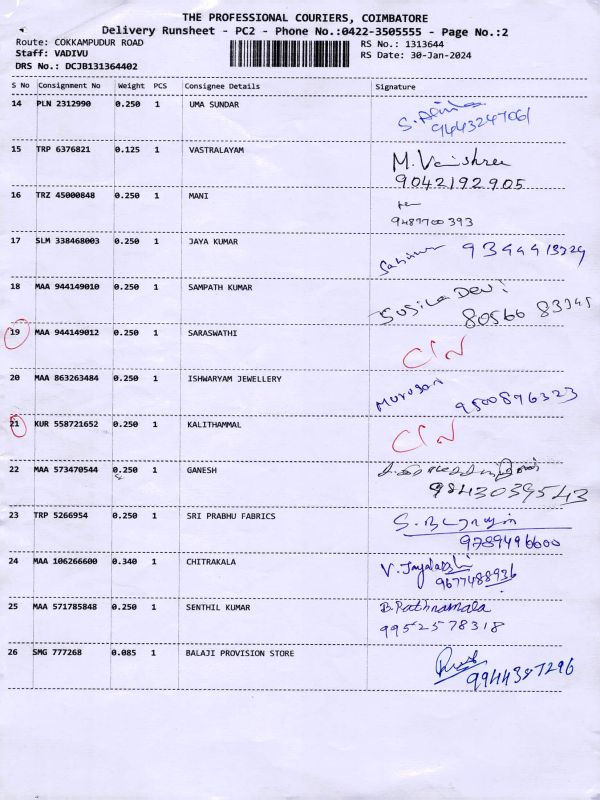 THE PROFESSIONAL COURIERS, COIMBATORE
Delivery Runsheet - PC2 - Phone No.:0422-3505555 - Page No.:2
Route: COKKAMPUDUR ROAD RS No.: 1313644
Staff: VADIVU RS Date: 30-Jan-2024
DRS No.: DCJB131364402
S No Consignment No Weight PCS Consignee Details Signature
14 PLN 2312990 0.250 1 UMA SUNDAR
9443247061
15 TRP 6376821 0.125 1 VASTRALAYAM M. Vaishree
9042192905
16 TRZ 45000848 0.250 1 MANI
9487700393
17 SLM 338468003 0.250 1 JAYA KUMAR
18 MAA 944149010 0.250 1 SAMPATH KUMAR Susila Devi
80566 83345
19 MAA 944149012 0.250 1 SARASWATHI C/N
20 MAA 863263484 0.250 1 ISHWARYAM JEWELLERY Murugan 9500896323
21 KUR 558721652 0.250 1 KALITHAMMAL C/N
22 MAA 573470544 0.250 1 GANESH
9843039543
23 TRP 5266954 0.250 1 SRI PRABHU FABRICS
9789496600
24 MAA 106266600 0.340 1 CHITRAKALA V. Jayalakshi
9677488936
25 MAA 571785848 0.250 1 SENTHIL KUMAR B. Rathnamala
9952578318
26 SMG 777268 0.085 1 BALAJI PROVISION STORE
9944387296